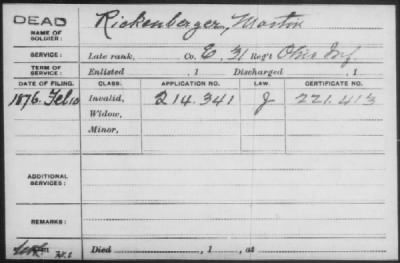 DEAD
NAME OF SOLDIER: Rickenberger, Martin
SERVICE: Late rank, Co. E, 31 Reg't Ohio Inf.
TERM OF SERVICE: Enlisted , 1 Discharged , 1
DATE OF FILING. CLASS. APPLICATION NO. LAW. CERTIFICATE NO.
1876. Feb 10 Invalid, 214.341 J 221.413
Widow,
Minor,
ADDITIONAL SERVICES:
REMARKS:
Died , 1 , at